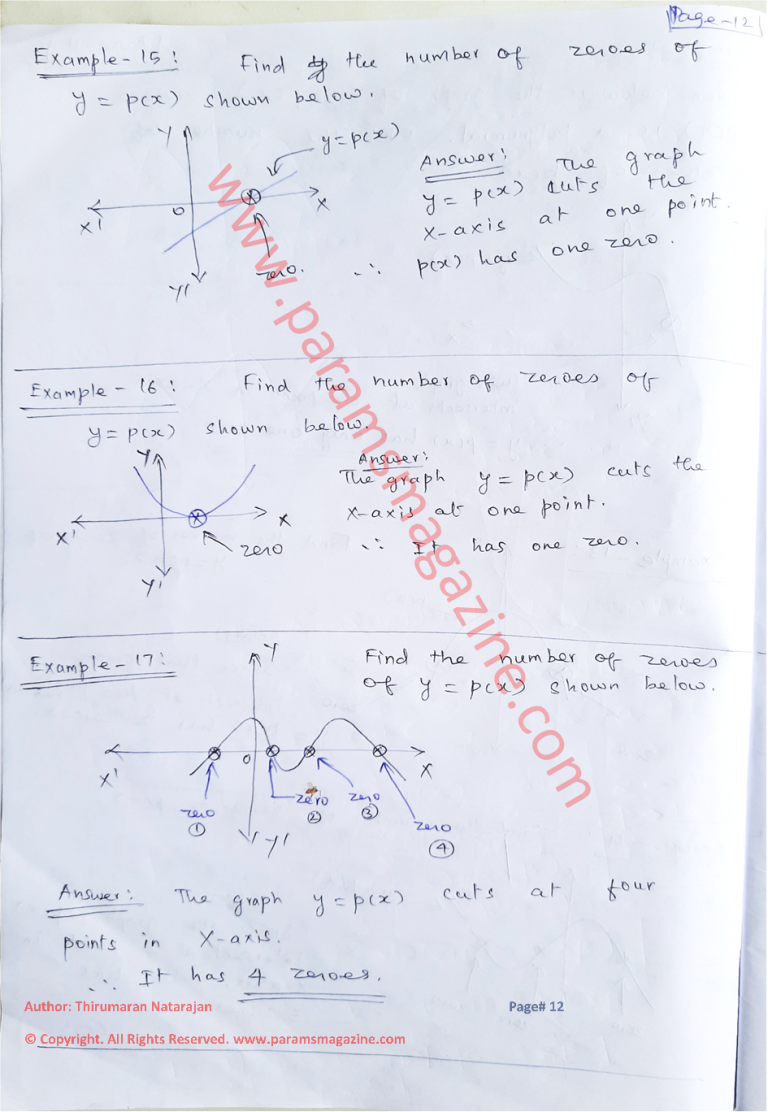 Page-12
Example-15: Find the number of zeroes of
y = p(x) shown below.
Y
y = p(x)
X'
O
X
zero.
Y'
Answer: The graph
y = p(x) cuts the
X-axis at one point.
∴ p(x) has one zero.
Example-16: Find the number of zeroes of
y = p(x) shown below.
Y
X'
X
zero
Y'
Answer:
The graph y = p(x) cuts the
X-axis at one point.
∴ It has one zero.
Example-17:
Find the number of zeroes
of y = p(x) shown below.
Y
X'
O
X
zero
①
zero
②
zero
③
zero
④
Y'
Answer: The graph y = p(x) cuts at four
points in X-axis.
∴ It has 4 zeroes.
Author: Thirumaran Natarajan
Page# 12
© Copyright. All Rights Reserved. www.paramsmagazine.com
www.paramsmagazine.com